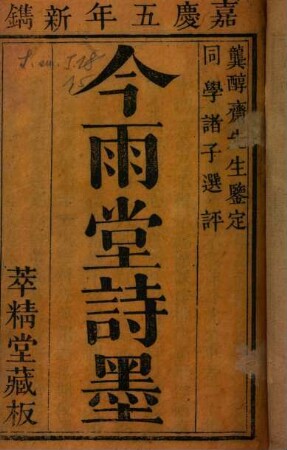 嘉慶五年新鐫
龔醇齋先生鑒定
同學諸子選評
今雨堂詩墨
萃精堂藏板